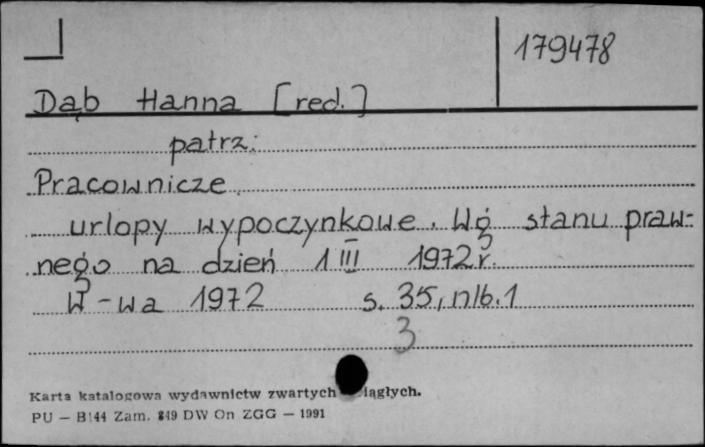 179478
Dąb Hanna [red.]
patrz:
Pracownicze
urlopy wypoczynkowe. Wg stanu praw-
nego na dzień 1 III 1972 r.
W-wa 1972 s. 35, nlb. 1
3
Karta katalogowa wydawnictw zwartych iągłych.
PU — B144 Zam. 849 DW On ZGG — 1991